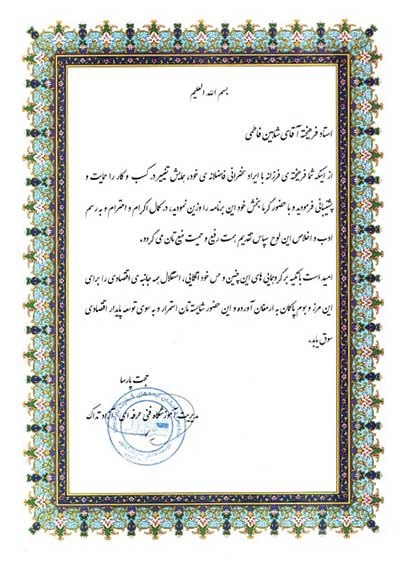 بسم الله العلیم
استاد فرهیخته آقای شاهین فاطمی
از اینکه شما فرهیخته ی فرزانه با ایراد سخنرانی فاضلانه ی خود، همایش تغییر در کسب و کار را حمایت و
پشتیبانی فرمودید و با حضور گرمابخش خود این برنامه را وزین نمودید، در کمال اکرام و احترام و به رسم
ادب و اخلاص این لوح سپاس تقدیم همت رفیع و حمیت منیع تان می گردد.
امید است با تکیه بر گردهمایی های این چنین و حس خود اتکایی، استقلال همه جانبه ی اقتصادی را برای
این مرز و بوم پاکان به ارمغان آورده و این حضور شایسته تان استمرار و به سوی توسعه پایدار اقتصادی
سوق یابد.
حجت پارسا
مدیریت آموزشگاه فنی حرفه ای آزاد تدراک